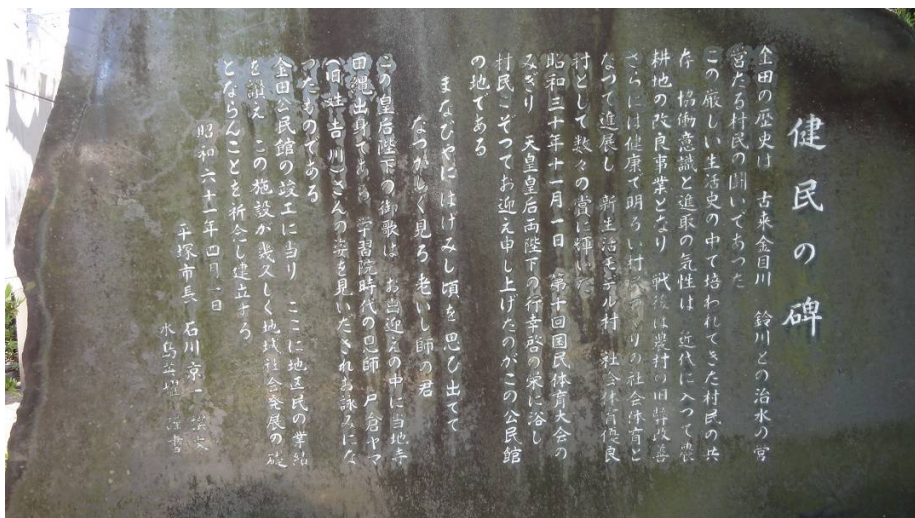 健民の碑
金田の歴史は 古来金目川 鈴川との治水の営
営たる村民の闘いであった
この厳しい生活史の中で培われてきた村民の共
存 協働意識と進取の気性は 近代に入つて農
耕地の改良事業となり 戦後は農村の旧弊改善
さらには健康で明るい村づくりの社会体育と
なつて進展し 新生活モデル村 社会体育優良
村として数々の賞に輝いた
昭和三十年十一月一日 第十回国民体育大会の
みぎり 天皇皇后両陛下の行幸啓の栄に浴し
村民こぞつてお迎え申し上げたのがこの公民館
の地である
まなびやにはげみし頃を思ひ出てて
なつかしく見る 老いし師の君
この皇后陛下の御歌は お出迎えの中に当地寺
田縄出身である 学習院時代の恩師 戸倉ヤマ
(旧姓吉川)さんの姿を見いだされお詠みにな
つたものである
金田公民館の竣工に当り ここに地区民の業績
を讃え この施設が幾久しく地域社会発展の礎
とならんことを祈念し建立する
昭和六十一年四月一日
平塚市長 石川京一 撰文
水島 書